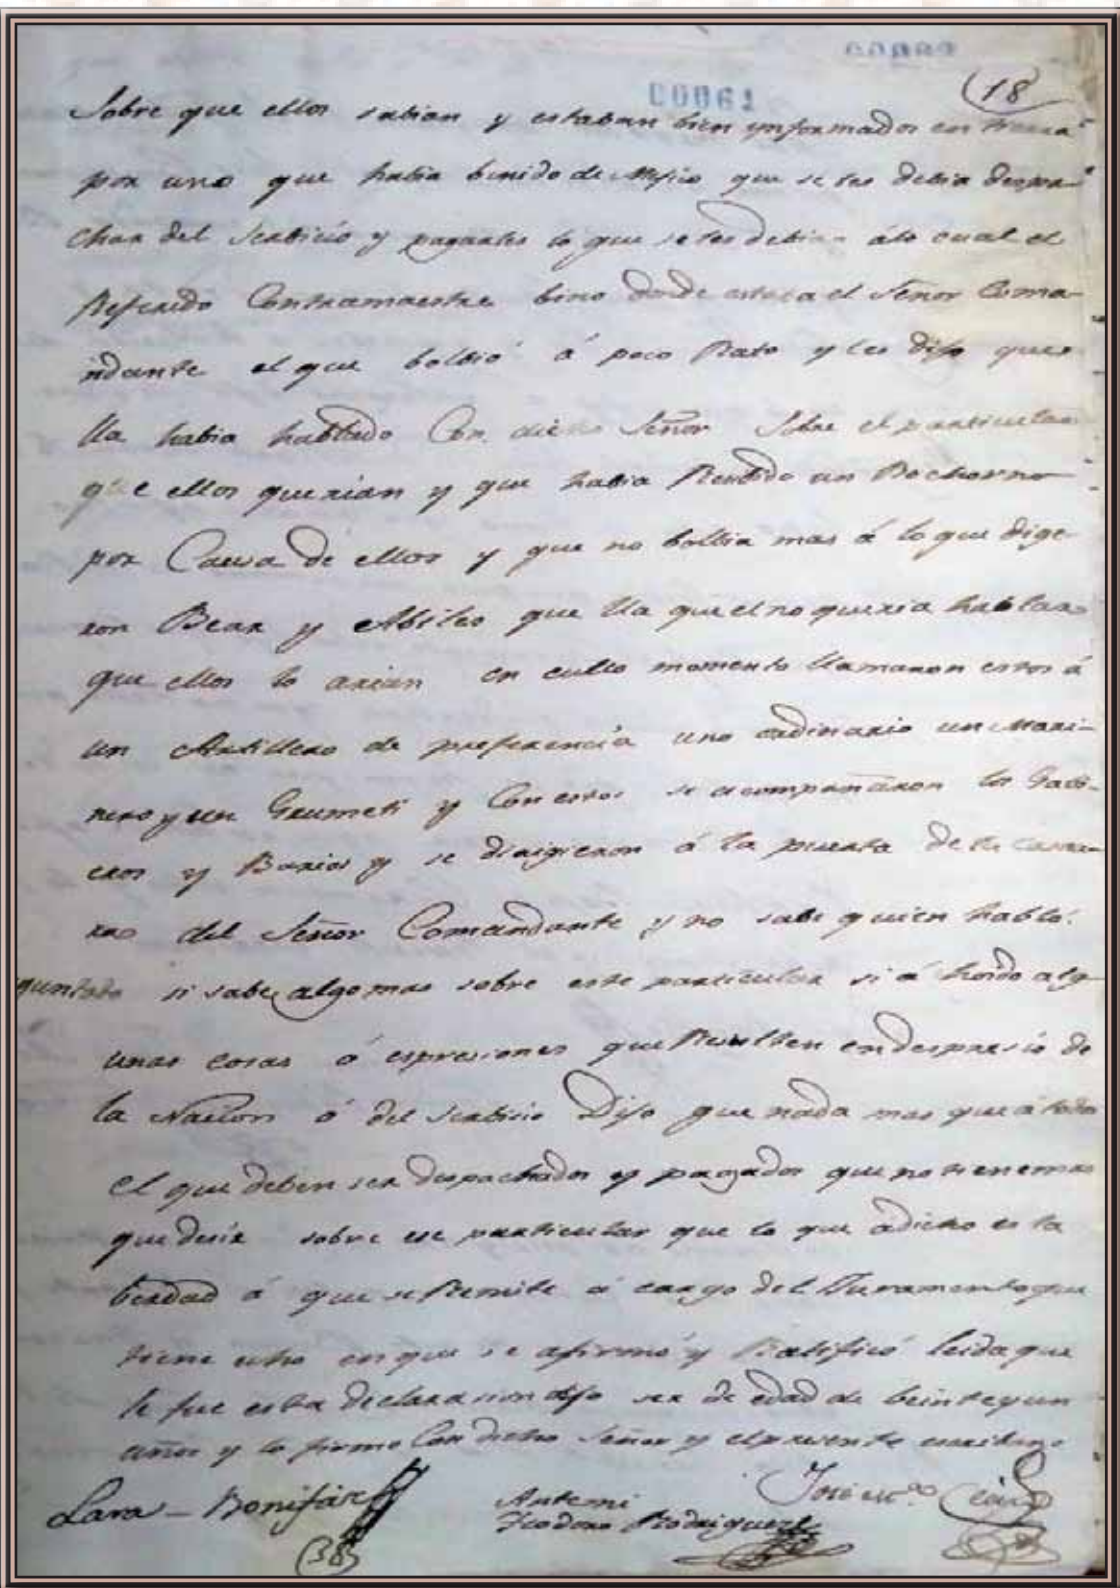 00061
(18
Sobre que ellos sabian y estaban bien ynformados en tierra
por uno que habia benido de Mejico que se les debia despa-
char del serbicio y pagarles lo que se les debia álo cual el
Referido Contramaestre bino donde estaba el Señor Coma-
ndante el que bolbió á poco Rato y les dijo que
lla habia hablado Con dicho Señor Sobre el particular
que ellos querian y que habia Resibido un Bochorno
por Causa de ellos y que no bolbia mas á lo que dige-
ron Bear y Abiles que lla que el no queria hablar
que ellos lo arian en cullo momento llamaron estos á
un Artillero de preferencia uno ordinario un Mari-
nero y un Grumete y Con estos se acompañaron los
y Barios y se dirigieron á la puerta de la cama-
ra del Señor Comandante y no sabe quien habló.
guntado si sabe algo mas sobre este particular si á hoido alg-
unas cosas ó espresiones que Resulten en despresio de
la Nacion ó del serbicio Dijo que nada mas que á todos
el que deben ser despachados y pagados que no tiene mas
que desir sobre ese particular que lo que adicho es la
berdad á que se Remite á cargo del Juramento que
tiene echo en que se afirmó y Ratificó leida que
le fue esta declarasion dijo ser de edad de beinte y un
años y lo firmo Con dicho Señor y el presente escribano
Lara - Bonifás
Antemi
Teodoro Rodriguez
José
(38)